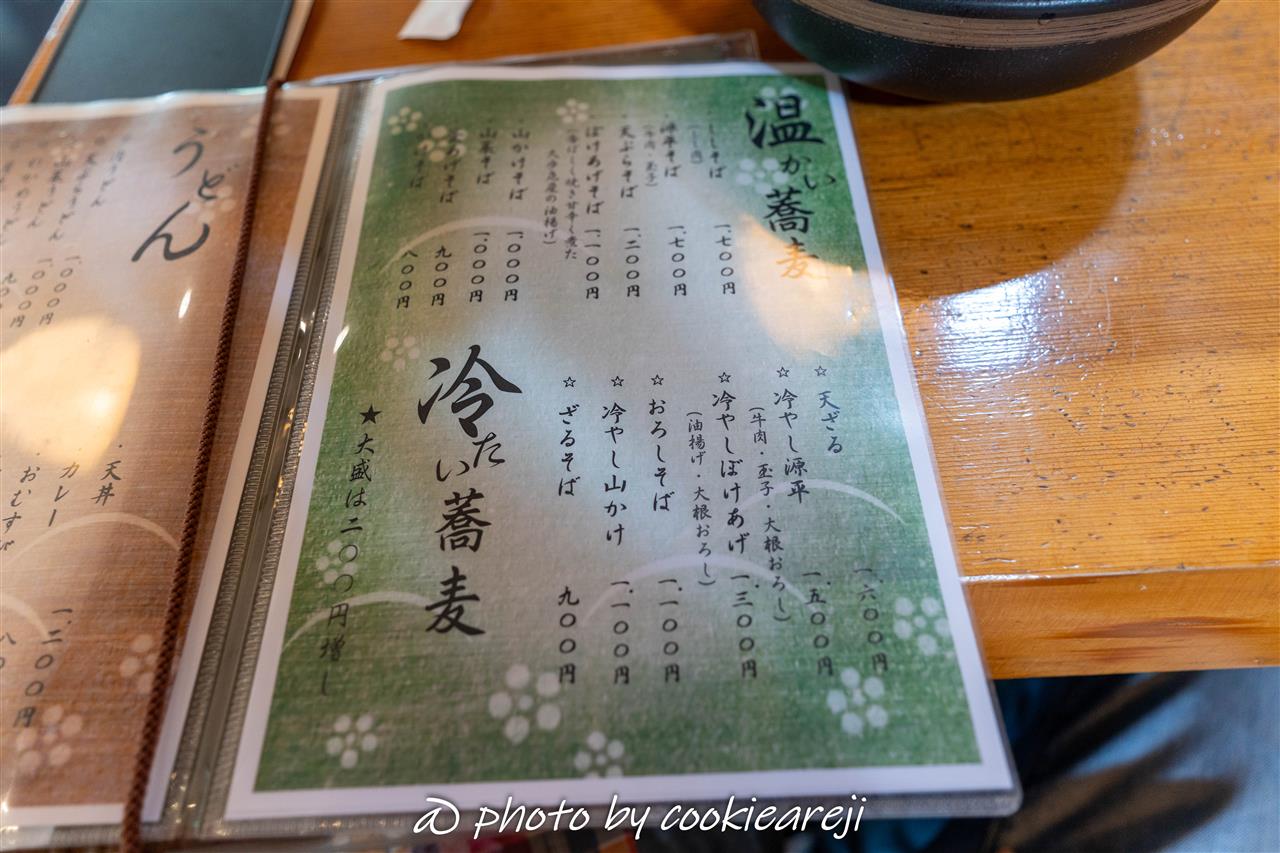 温かい蕎麦
ししそば 一.七〇〇円
(しし肉)
源平そば 一.七〇〇円
(牛肉・玉子)
天ぷらそば 一.二〇〇円
ぼけあげそば 一.一〇〇円
(香ばしく焼き甘辛く煮た
久寺急屋の油揚げ)
山かけそば 一.〇〇〇円
山菜そば 一.〇〇〇円
そば 九〇〇円
そば 八〇〇円
☆ 天ざる 一.六〇〇円
☆ 冷やし源平 一.五〇〇円
(牛肉・玉子・大根おろし)
☆ 冷やしぼけあげ 一.三〇〇円
(油揚げ・大根おろし)
☆ おろしそば 一.一〇〇円
☆ 冷やし山かけ 一.一〇〇円
☆ ざるそば 九〇〇円
冷たい蕎麦
★ 大盛は二〇〇円増し
うどん
天ぷらうどん
山菜うどん 一.〇〇〇円
わかめうどん 一.〇〇〇円
・天丼
・カレー
・おむすび
一.二〇〇円
@ photo by cookieareji